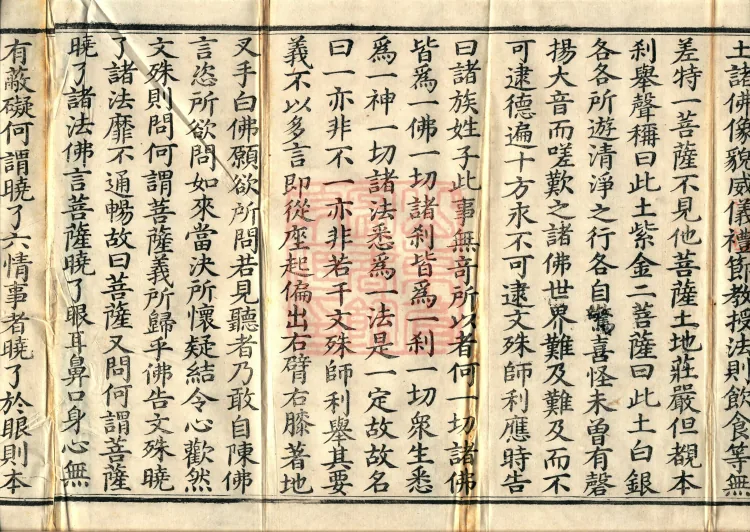 土諸佛像貌威儀禮節教授法則飲食等無
差特一菩薩不見他菩薩土地莊嚴但覩本
刹舉聲稱曰此土紫金二菩薩曰此土白銀
各各所遊清淨之行各自驚喜怪未曾有磬
揚大音而嗟歎之諸佛世界難及難及而不
可逮德遍十方永不可逮文殊師利應時告
曰諸族姓子此事無奇所以者何一切諸佛
皆爲一佛一切諸刹皆爲一刹一切衆生悉
爲一神一切諸法悉爲一法是一定故故名
曰一亦非不一亦非若干文殊師利舉其要
義不以多言即從座起偏出右臂右膝著地
叉手白佛願欲所問若見聽者乃敢自陳佛
言恣所欲問如來當決所懷疑結令心歡然
文殊則問何謂菩薩義所歸乎佛告文殊曉
了諸法靡不通暢故曰菩薩又問何謂菩薩
曉了諸法佛言菩薩曉了眼耳鼻口身心無
有蔽礙何謂曉了六情事者曉了於眼則本